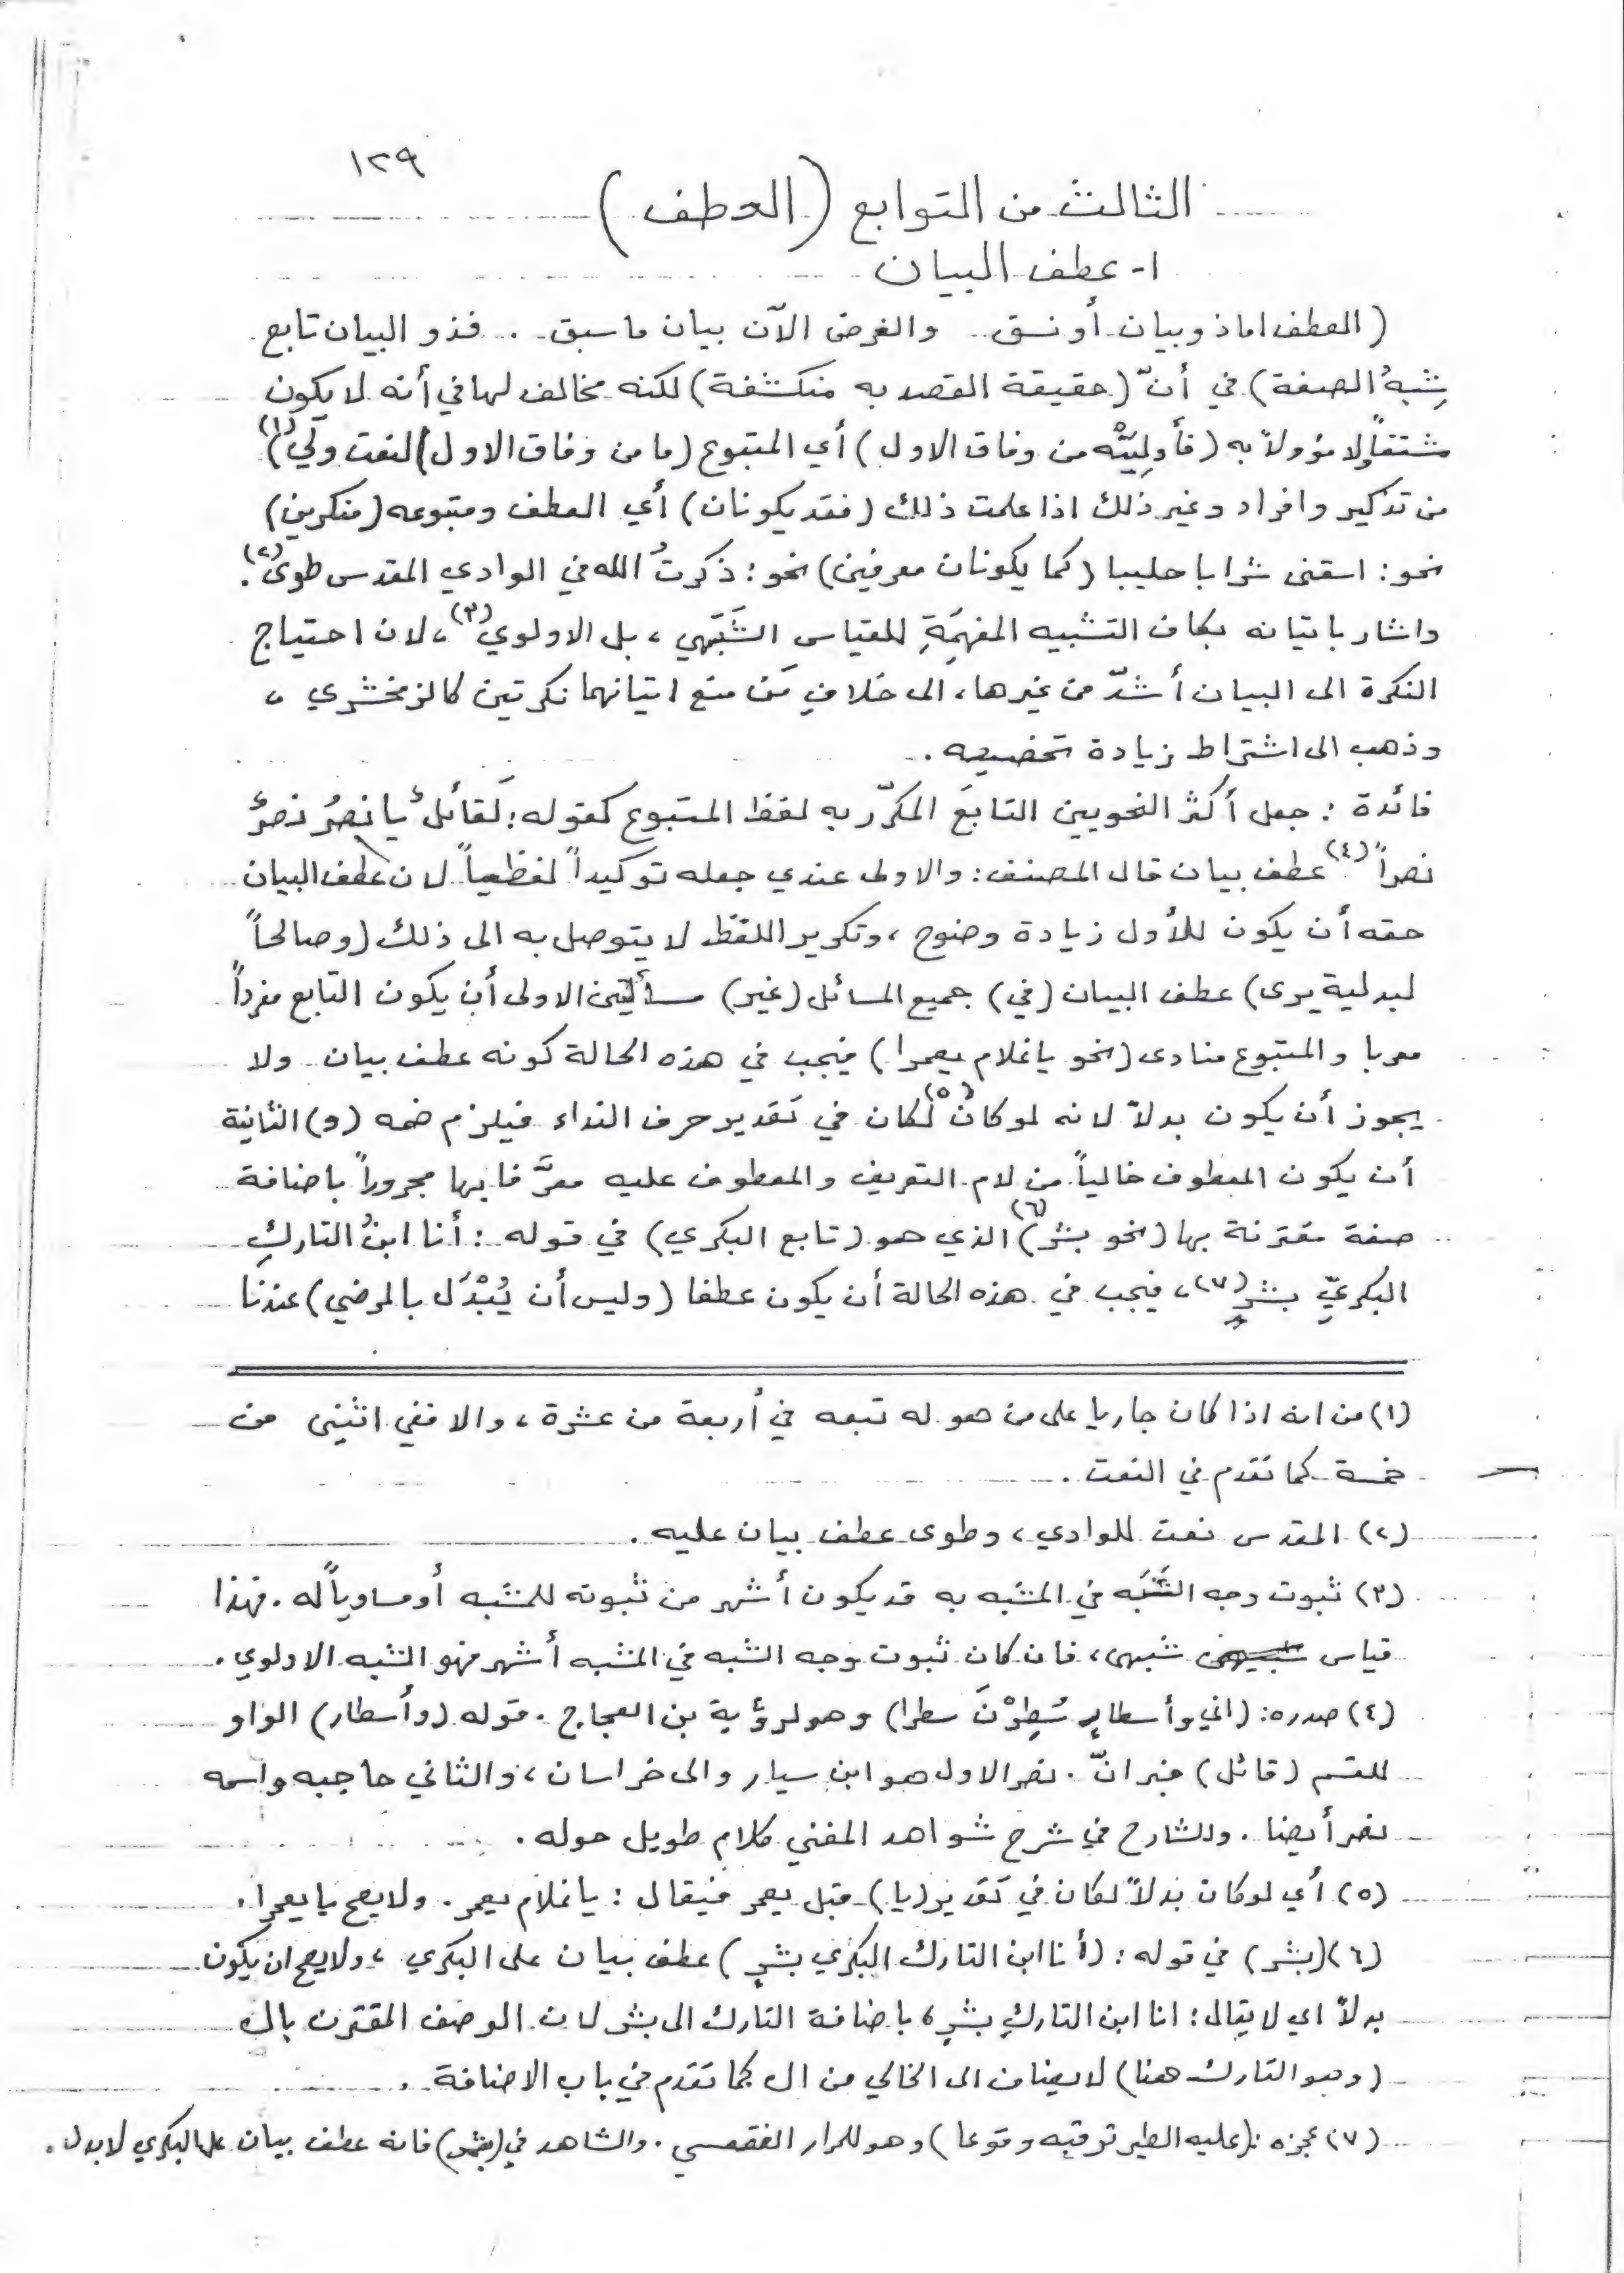 ١٢٩
الثالث من التوابع (العطف)
١- عطف البيان
(العطف اما ذو بيان أو نسق .. والغرض الآن بيان ما سبق .. فذو البيان تابع
شِبهُ الصفة) في أنّ (حقيقة القصد به منكشفة) لكنه مخالف لها في أنه لا يكون
مشتقاً ولا مؤولاً به (فأولِيَنْه من وفاق الاول) أي المتبوع (ما من وفاق الاول) النعت ولي)(١)
من تذكير وافراد وغير ذلك اذا علمت ذلك (فقد يكونان) أي العطف ومتبوعه (منكرين)
نحو: اسقنى شرابا حليبا (كما يكونان معرفين) نحو: ذكرتُ الله في الوادي المقدس طوىً(٢).
واشار باتيانه بكاف التشبيه المفهِمَةِ للقياس الشَبَهي، بل الاولوي(٣)، لان احتياج
النكرة الى البيان أشدّ من غيرها، الى خلافِ مَن منع اتيانهما نكرتين كالزمخشري،
وذهب الى اشتراط زيادة تخصيصه.
فائدة: جعل أكثر النحويين التابعَ المكرّر به لفظ المتبوع كقوله: لَقائلٌ يا نصرُ نصرٌ
نصراً(٤) عطف بيان قال المصنف: والاولى عندي جعله توكيداً لفظياً لان عطف البيان
حقه أن يكون للأول زيادة وضوح، وتكرير اللفظ لا يتوصل به الى ذلك (وصالحاً
لبدلية يرى) عطف البيان (في) جميع المسائل (غير) مسألتين الاولى أن يكون التابع مفرداً
معربا والمتبوع منادى (نحو يا غلام يعمرا) فيجب في هذه الحالة كونه عطف بيان ولا
يجوز أن يكون بدلاً لانه لو كان(٥) لكان في تقدير حرف النداء فيلزم ضمه (و) الثانية
أن يكون المعطوف خالياً من لام التعريف والمعطوف عليه معرَّفا بها مجروراً باضافة
صفة مقترنة بها (نحو بشر)(٦) الذي هو (تابع البكري) في قوله: أنا ابنُ التاركِ
البكريِّ بشرٍ(٧)، فيجب في هذه الحالة أن يكون عطفا (وليس أن يُبْدَل بالمرضي) عندنا
(١) من انه اذا كان جاريا على من هو له تبعه في أربعة من عشرة، والا ففي اثنين من
خمسة كما تقدم في النعت.
(٢) المقدس نعت للوادي، وطوى عطف بيان عليه.
(٣) ثبوت وجه الشَبَه في المشبه به قد يكون أشهر من ثبوته للمشبه أو مساوياً له. فهذا
قياس شبهى، فان كان ثبوت وجه الشبه في المشبه أشهر فهو الشبه الاولوي.
(٤) صدره: (اني وأسطارٍ سُطِرْنَ سطرا) وهو لرؤية بن العجاج. قوله (وأسطار) الواو
للقسم (قائل) خبر انّ. نصر الاول هو ابن سيار والى خراسان، والثاني حاجبه واسمه
نصر أيضا. وللشارح في شرح شواهد المغني كلام طويل حوله.
(٥) أي لو كان بدلاً لكان في تقدير (يا) قبل يعمر فيقال: يا غلام يعمر. ولا يصح يا يعمرا.
(٦) (بشر) في قوله: (أنا ابن التارك البكري بشرٍ) عطف بيان على البكري، ولا يصح ان يكون
بدلاً اي لا يقال: انا ابن التاركِ بشرٍ، باضافة التارك الى بشر لان الوصف المقترن بال
(وهو التارك هنا) لا يضاف الى الخالي من ال كما تقدم في باب الاضافة.
(٧) عجزه: (عليه الطير ترقبه وقوعا) وهو للمرار الفقعسي. والشاهد في (بشر) فانه عطف بيان على البكري لا بدل.